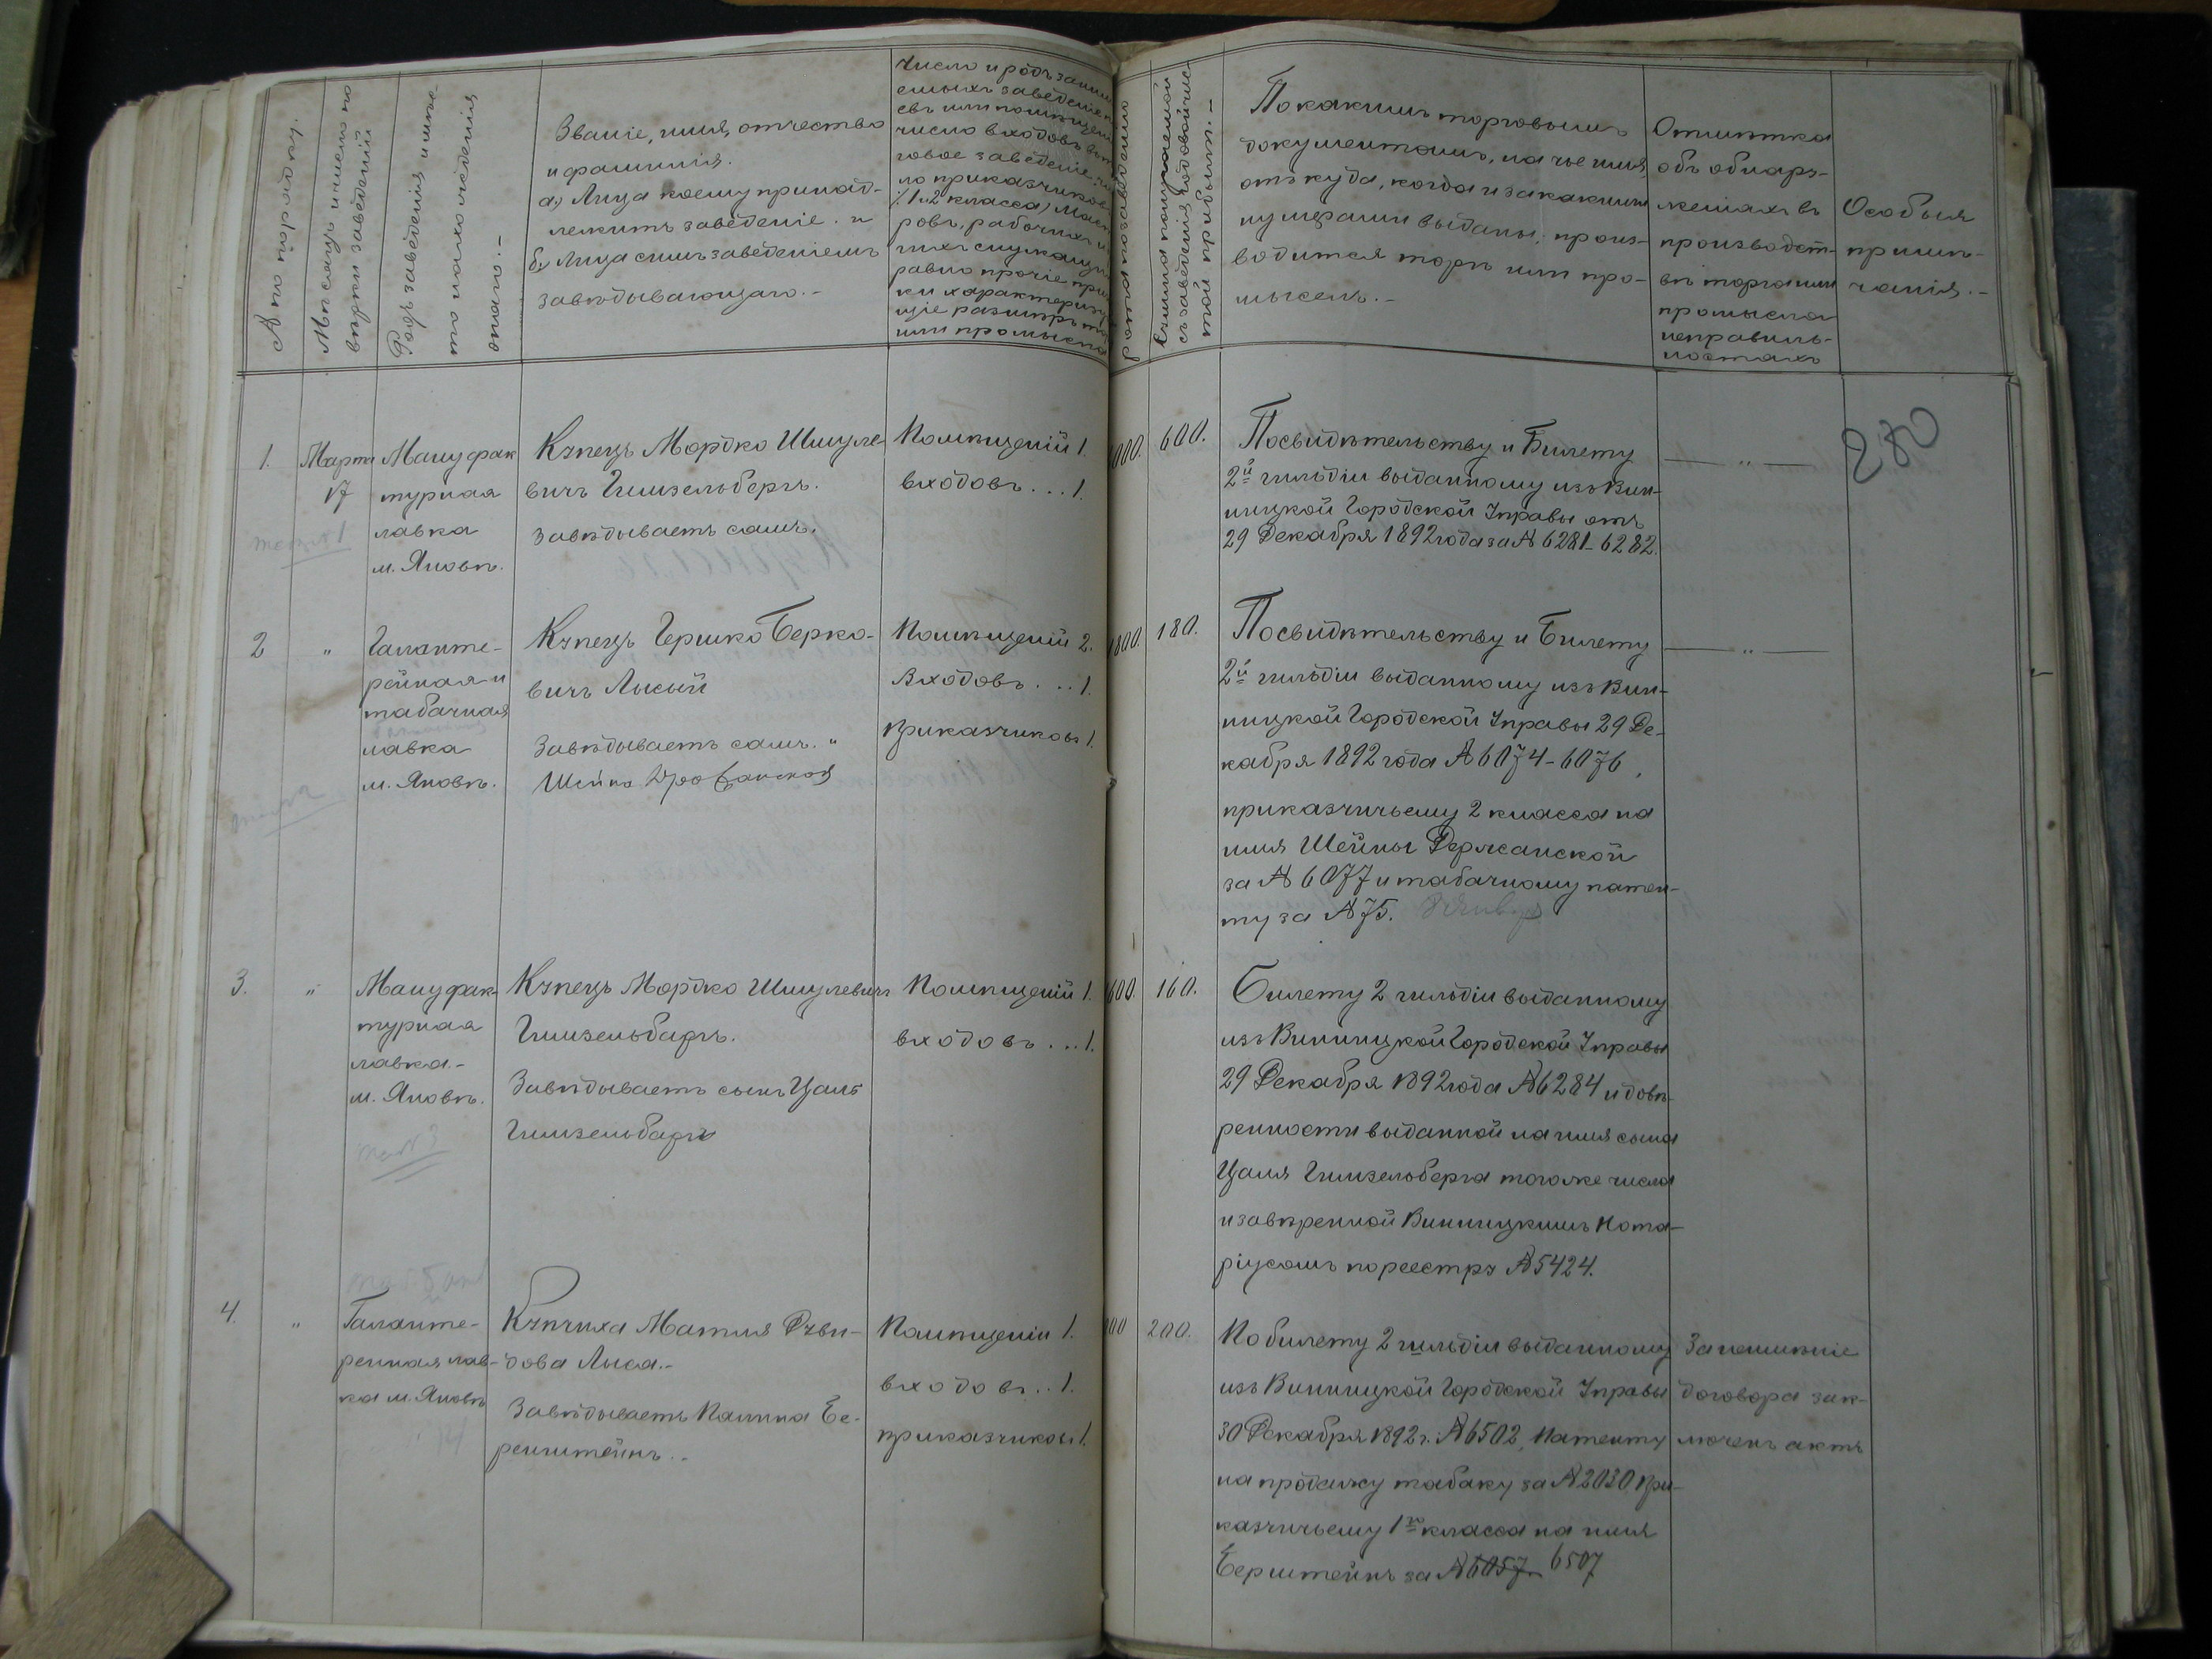 № по порядку.
Мѣсяцъ и число по
вѣрки заведеній
Родъ заведенія и мѣс-
то нахожденія
онаго.-
Званіе, имя, отчество
и фамилія.
а) Лица коему принад-
лежитъ заведеніе. и
б) Лица симъ заведеніемъ
завѣдывающаго.-
Число и родъ заним
емыхъ заведеніе
число входовъ въ
говое заведеніе
ло приказчиков
1 и 2 класса
ровъ, рабочихъ и
гихъ служащи
равно прочіе приз
ки характериз
щіе размѣръ то
или промысла
Сумма получаемой
съ заведенія годовой чис
той прибыли.-
По какимъ торговымъ
документамъ, на чье имя,
откуда, когда и за какими
нумерами выданы, произ-
водится торгъ или про-
мыселъ.-
Отмѣтка
объ обнару-
женіяхъ въ
производст-
вѣ торга или
промысла
неправиль-
ностяхъ
Особыя
примѣ-
чанія.-
280
1.
Марта
17
Мануфак
турная
лавка
м. Яновѣ.
Купецъ Мордко Шмуле-
вичъ Гимзельбергъ.
Завѣдываетъ самъ.
Помѣщеній 1.
входовъ...1.
600.
По свидѣтельству и Билету
2й гильдіи выданному изъ Вин-
ницкой Городской Управы отъ
29 Декабря 1892 года за № 6281-6282.
— " —
2
"
Галанте-
рейная и
табачная
лавка
м. Яновѣ.
Купецъ Гершко Берко-
вичъ Лысый
Завѣдываетъ самъ. "
Шейна
Помѣщеній 2.
Входовъ...1.
Приказчиковъ 1.
1800.
180.
По свидѣтельству и Билету
2й гильдіи выданному изъ Вин-
ницкой Городской Управы 29 Де-
кабря 1892 года № 6074-6076,
приказчичьему 2 класса на
имя Шейны Держанской
за № 6077 и табачному патен-
ту за № 75.
— " —
3.
"
Мануфак-
турная
лавка.-
м. Яновѣ.
Купецъ Мордко Шмулевичъ
Гимзельбаргъ.
Завѣдываетъ сынъ Цаль
Гимзельбаргъ
Помѣщеній 1.
входовъ...1.
1600.
160.
Билету 2 гильдіи выданному
изъ Винницкой Городской Управы
29 Декабря 1892 года № 6284 и довѣ-
ренности выданной на имя сына
Цаля Гимзельберга того же числа
и завѣренной Винницкимъ Нота-
ріусомъ по реестру № 5424.
4.
"
Галанте-
рейная лав-
ка м. Яновѣ
Купчиха Матля Дуви-
дова Лиса.-
Завѣдываетъ Пашна Бе-
ренштейнъ..
Помѣщеніи 1.
входовъ..1.
приказчиковъ 1.
200.
По билету 2 гильдіи выданному
изъ Винницкой Городской Управы
30 Декабря 1892 г. № 6502, Патенту
на продажу табаку за № 2030 При-
казчичьему 1го класса на имя
Берштейнъ за № 6057 6507
За неимѣніе
договора зак-
люченъ актъ